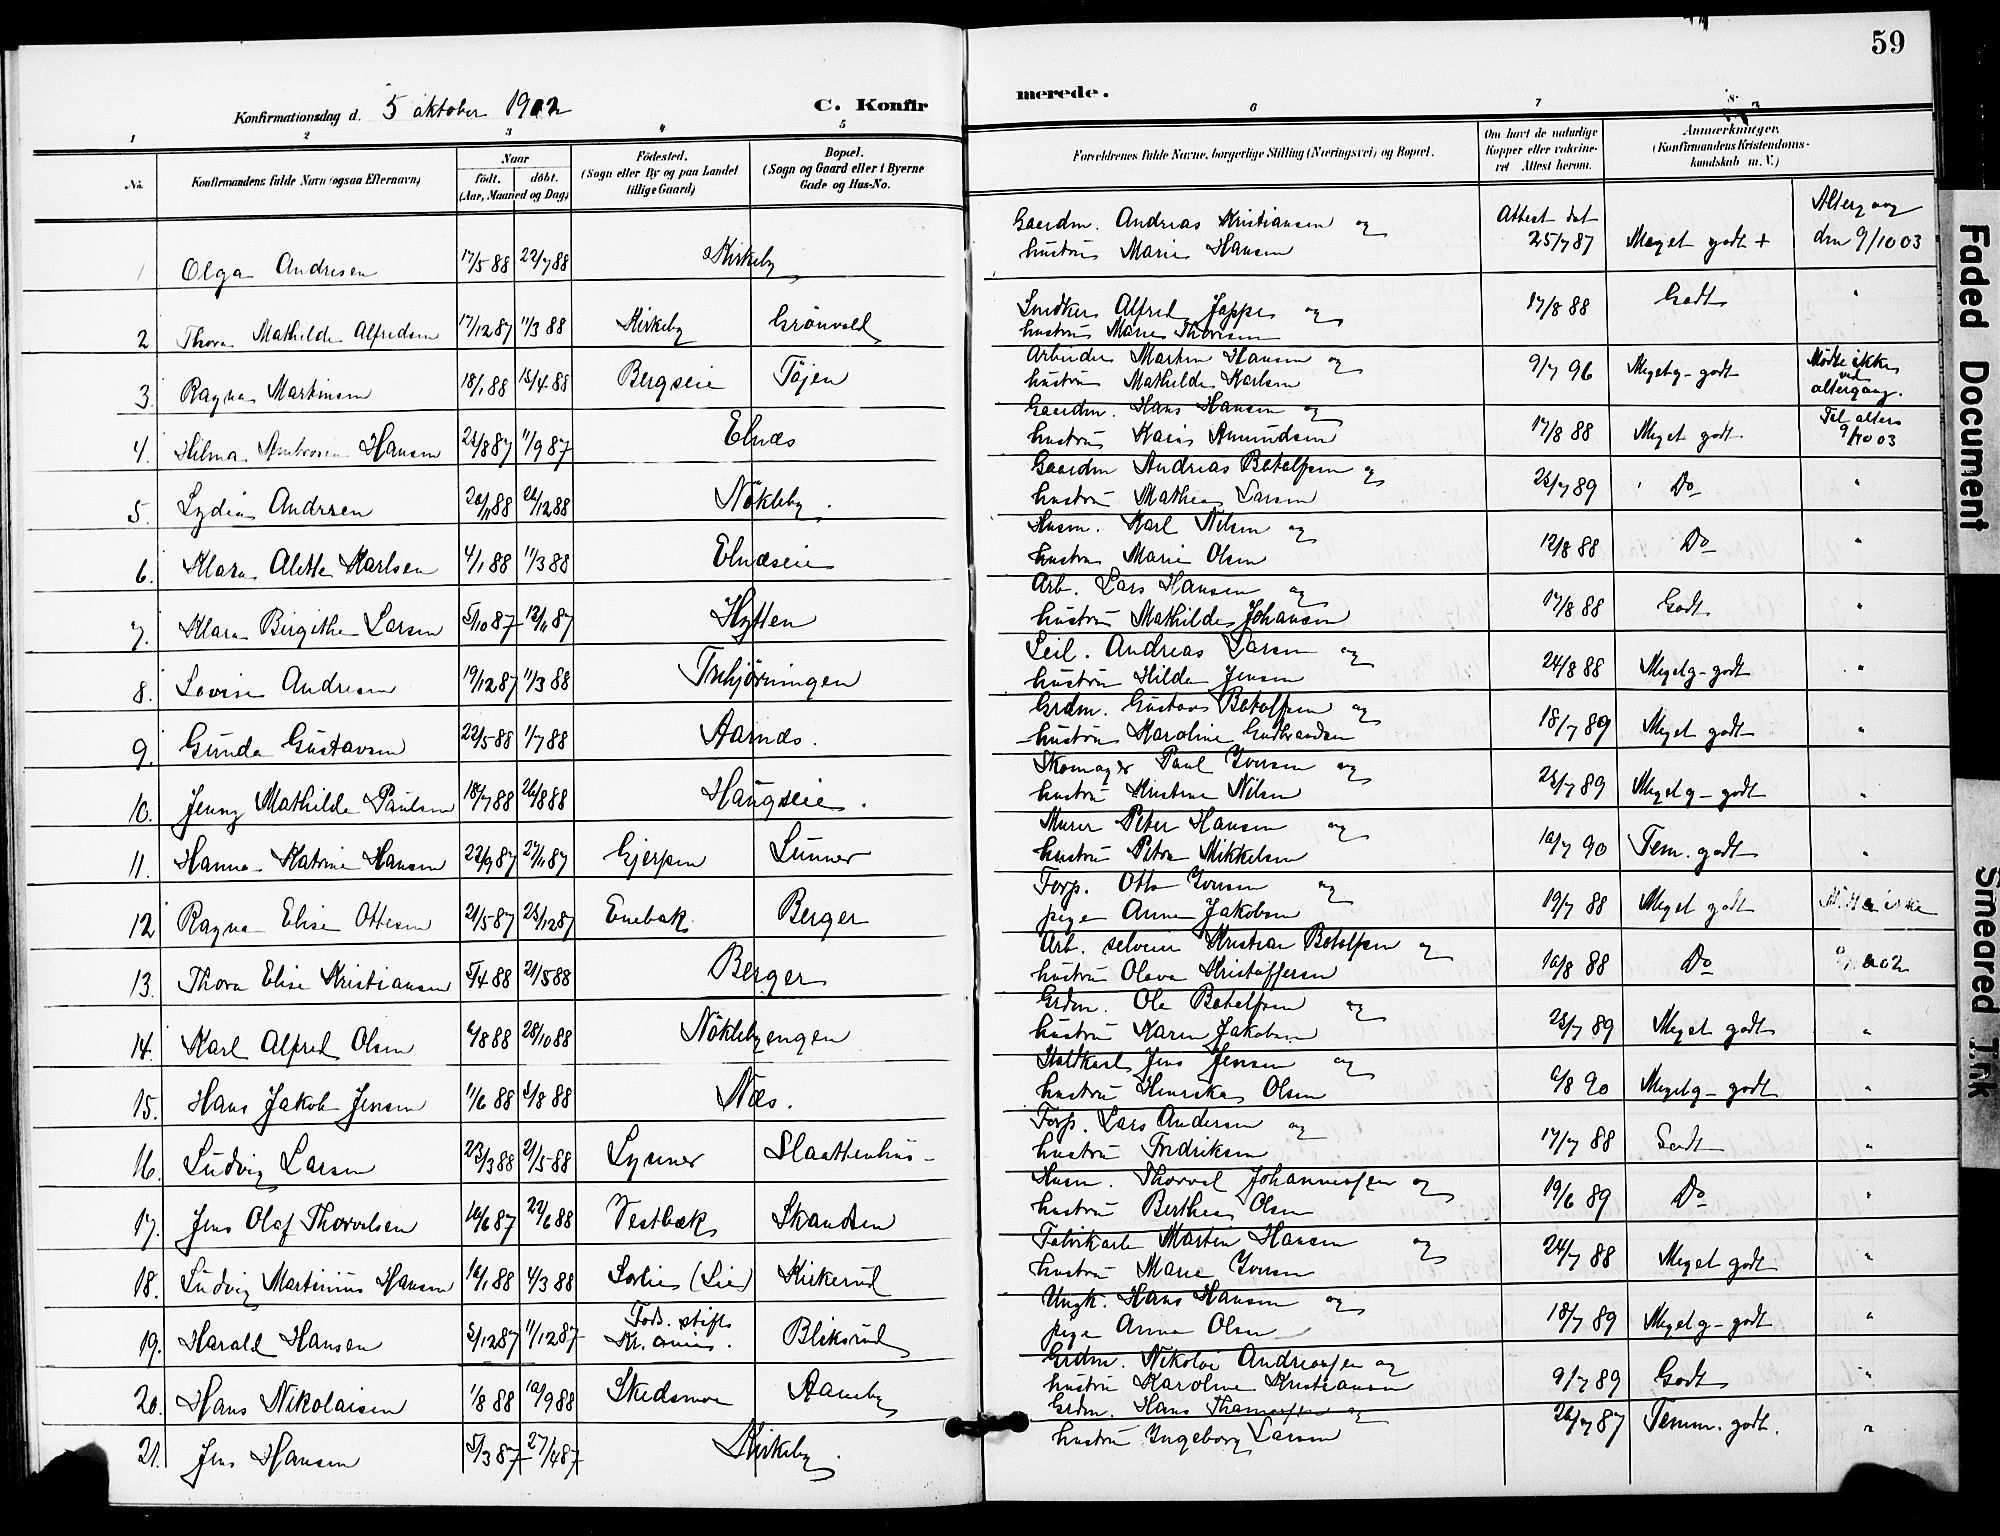 59
Konfirmationsdag d. 5 oktober 1902
C. Konfirmerede.
1 2 3 4 5 6 7 8
No.
Konfirmandens fulde Navn (ogsaa Efternavn)
Naar
födt. döbt.
(Aar, Maaned og Dag)
Födested.
(Sogn eller By og paa Landet
tillige Gaard)
Bopæl.
(Sogn og Gaard eller i Byerne
Gade og Hus-No.
Forældrenes fulde Navne, borgerlige Stilling (Næringsvei) og Bopæl.
Om havt de naturlige
Kopper eller vaccine-
ret Attest herom.
Anmærkninger,
(Konfirmandens Kristendoms-
kundskab m. V.)
1 Olga Andresen 17/5 88 22/7 88 Kirkeby
Gaardm. Andreas Kristiansen og
hustru Marie Hansen
Attest dat
25/7 87 Meget godt +
Altergang
den 9/10 03
2 Thora Mathilde Alfredsen 17/12 87 11/3 88 Kirkeby Grönvold
Snedker Alfred Jappe og
hustru Marie Thoresen
17/8 88 Godt "
3. Ragna Martinsen 18/1 88 15/4 88 Bergseie Töjen
Arbeider Martin Hansen og
hustru Mathilde Karlsen
9/7 96 Megetg-godt
Mödte ikke
ved
altergang.
4. Hilma Ambrosen Hansen 1/9 87 Elnæs
Gaardm. Hans Hansen og
hustru Karis Amundsen
17/8 88 Meget godt
Til alters
9/10 03
5. Lydia Andrsen 20/11 88 26/12 88 Nökleby.
Gaardm Andreas Botolfsen og
hustru Mathea Larsen
25/7 89 Do "
6. Klara Alette Karlsen 4/1 88 11/3 88 Elnæseie
Husm. Karl Nilsen og
hustru Marie Olsen
12/8 88 Do "
7. Klara Birgithe Larsen 5/10 87 13/11 87 Hytten
Arb. Lars Hansen og
hustru Mathilde Johansen
17/8 88 Godt "
8. Lovise Andresen 19/12 87 11/3 88 Trehjörningen
Leil. Andreas Larsen og
hustru Hilda Jensen
24/8 88 Megetg-godt "
9. Gunda Gustavsen 22/5 88 1/7 88 Aarnæs.
Grdm. Gustav Botolfsen og
hustru Karoline Gudbrandsen
18/7 89 Meget godt "
10. Jenny Mathilde Paulsen 18/7 88 26/8 88 Haugseie.
Skomager Paul Ivrsen og
hustru Kristine Nilsen
25/7 89 Megetg-godt "
11. Hanna Katrine Hansen 22/9 87 27/11 87 Gjerpen Lunner
Murer Peter Hansen og
hustru Petra Mikkelsen
10/7 90 Tem. godt "
12 Ragna Elise Ottesen 21/5 87 25/12 87 Enebak Berger
Torp. Otto Ivrsen og
pige Anna Jakobsen
19/7 88 Meget godt
13. Thora Elise Kristiansen 5/4 88 21/5 88 Berger
Arb. selveier Kristian Botolfsen og
hustru Olava Kristoffersen
10/8 88 Do
14. Karl Alfred Olsen 6/8 88 28/10 88 Nöklebyengen
Grdm. Ole Botolfsen og
hustru Karen Jakobsen
25/7 89 Meget godt "
15. Hans Jakob Jensen 11/6 88 5/8 88 Næs.
Staldkarl Jens Jensen og
hustru Henrika Olsen
6/8 90 Megetg-godt "
16. Ludvig Larsen 23/3 88 21/5 88 Lysiner Slaattenhus-
Torp. Lars Andersen og
hustru Fredriksen
17/7 88 Godt "
17. Jens Olaf Thorvalsen 16/6 87 22/6 88 Vestbæk Skansen
Husm. Thorval Johannessen og
hustru Berthea Olsen
19/6 89 Do "
18. Ludvig Martinius Hansen 16/1 88 4/3 88 Sorlie (Lie) Kirkerud
Fabrikarb Martin Hansen og
hustru Marie Ivrsen
24/7 88 Meget godt "
19. Harald Hansen 5/12 87 11/12 87 Föds. stift.
Kr.ania. Bliksrud
Ungk. Hans Hansen og
pige Anna Olsen
18/7 89 Megetg-godt "
20. Hans Nikolaisen 1/8 88 10/9 88 Skedsmo Aameby
Grdm. Nikolai Andreassen og
hustru Karoline Kristiansen
9/7 89 Godt "
21. Jens Hansen 5/3 87 27/4 87 Kirkeby.
Grdm. Hans Thomassen og
hustru Ingeborg Larsen
26/7 87 Temm. godt. "
Faded Document
Smeared Ink